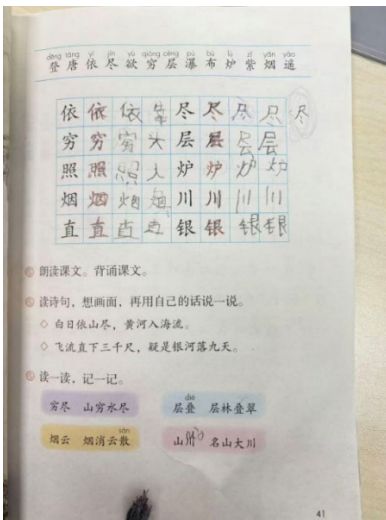 dēng táng yī jìn yù qióng céng pù bù lú zǐ yān yáo
登 唐 依 尽 欲 穷 层 瀑 布 炉 紫 烟 遥
依 依 依 尽 尽 尽 尽 尽
穷 穷 穷 头 层 层 层 层
照 照 照 人 炉 炉 炉 炉
烟 烟 烟 烟 川 川 川 川
直 直 直 直 银 银 银 银
朗读课文。背诵课文。
读诗句，想画面，再用自己的话说一说。
◇ 白日依山尽，黄河入海流。
◇ 飞流直下三千尺，疑是银河落九天。
读一读，记一记。
dié
穷尽 山穷水尽 层叠 层林叠翠
sàn
烟云 烟消云散 山川 名山大川
41